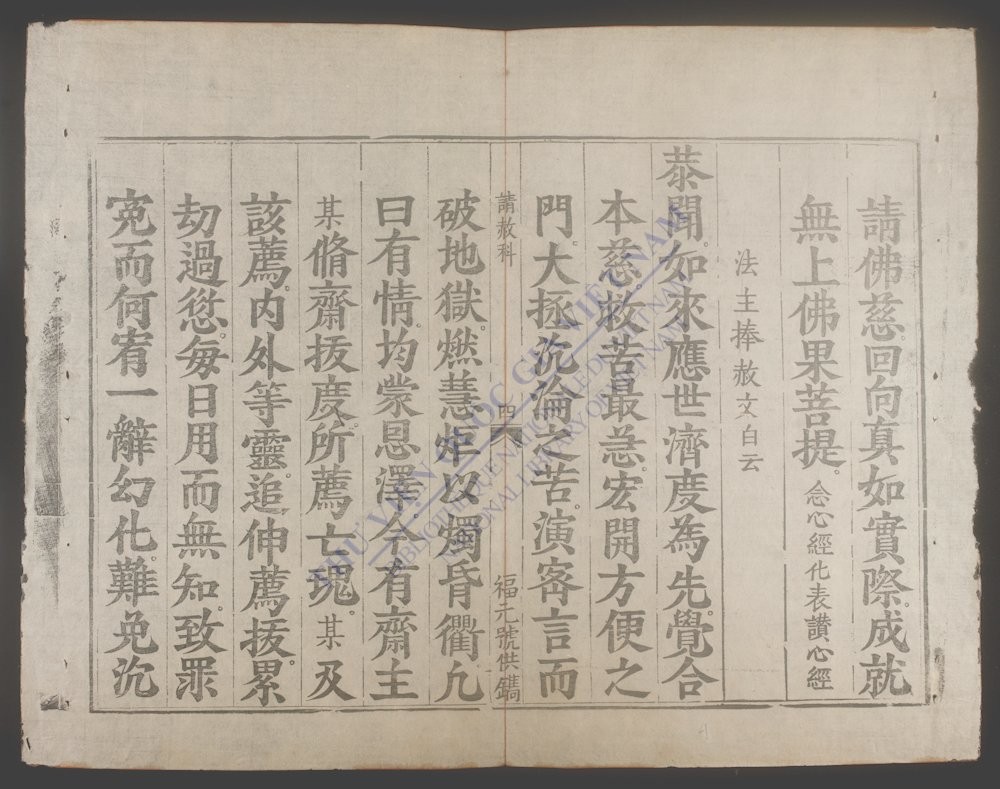 請佛慈。回向真如實際。成就
無上佛果菩提。念心經化表讃心經
法主捧赦文白云
恭聞。如來應世濟度為先。覺合
本慈。救苦最急。宏開方便之
門。大拯沉淪之苦。演宻言而
請赦科 四 福元號供鐫
破地獄。燃慧炬以燭昏衢。凢
曰有情。均蒙恩澤。今有齋主
某脩齋拔度。所薦亡魂。某及
該薦。内外等靈。追伸薦拔。累
刧過愆。每日用而無知。致罪
寃而何宥。一辭幻化。難免沉
THU VIEN QUOC GIA VIET NAM
BIBLIOTHEQUE NATIONALE DU VIETNAM
NATIONAL LIBRARY OF VIETNAM